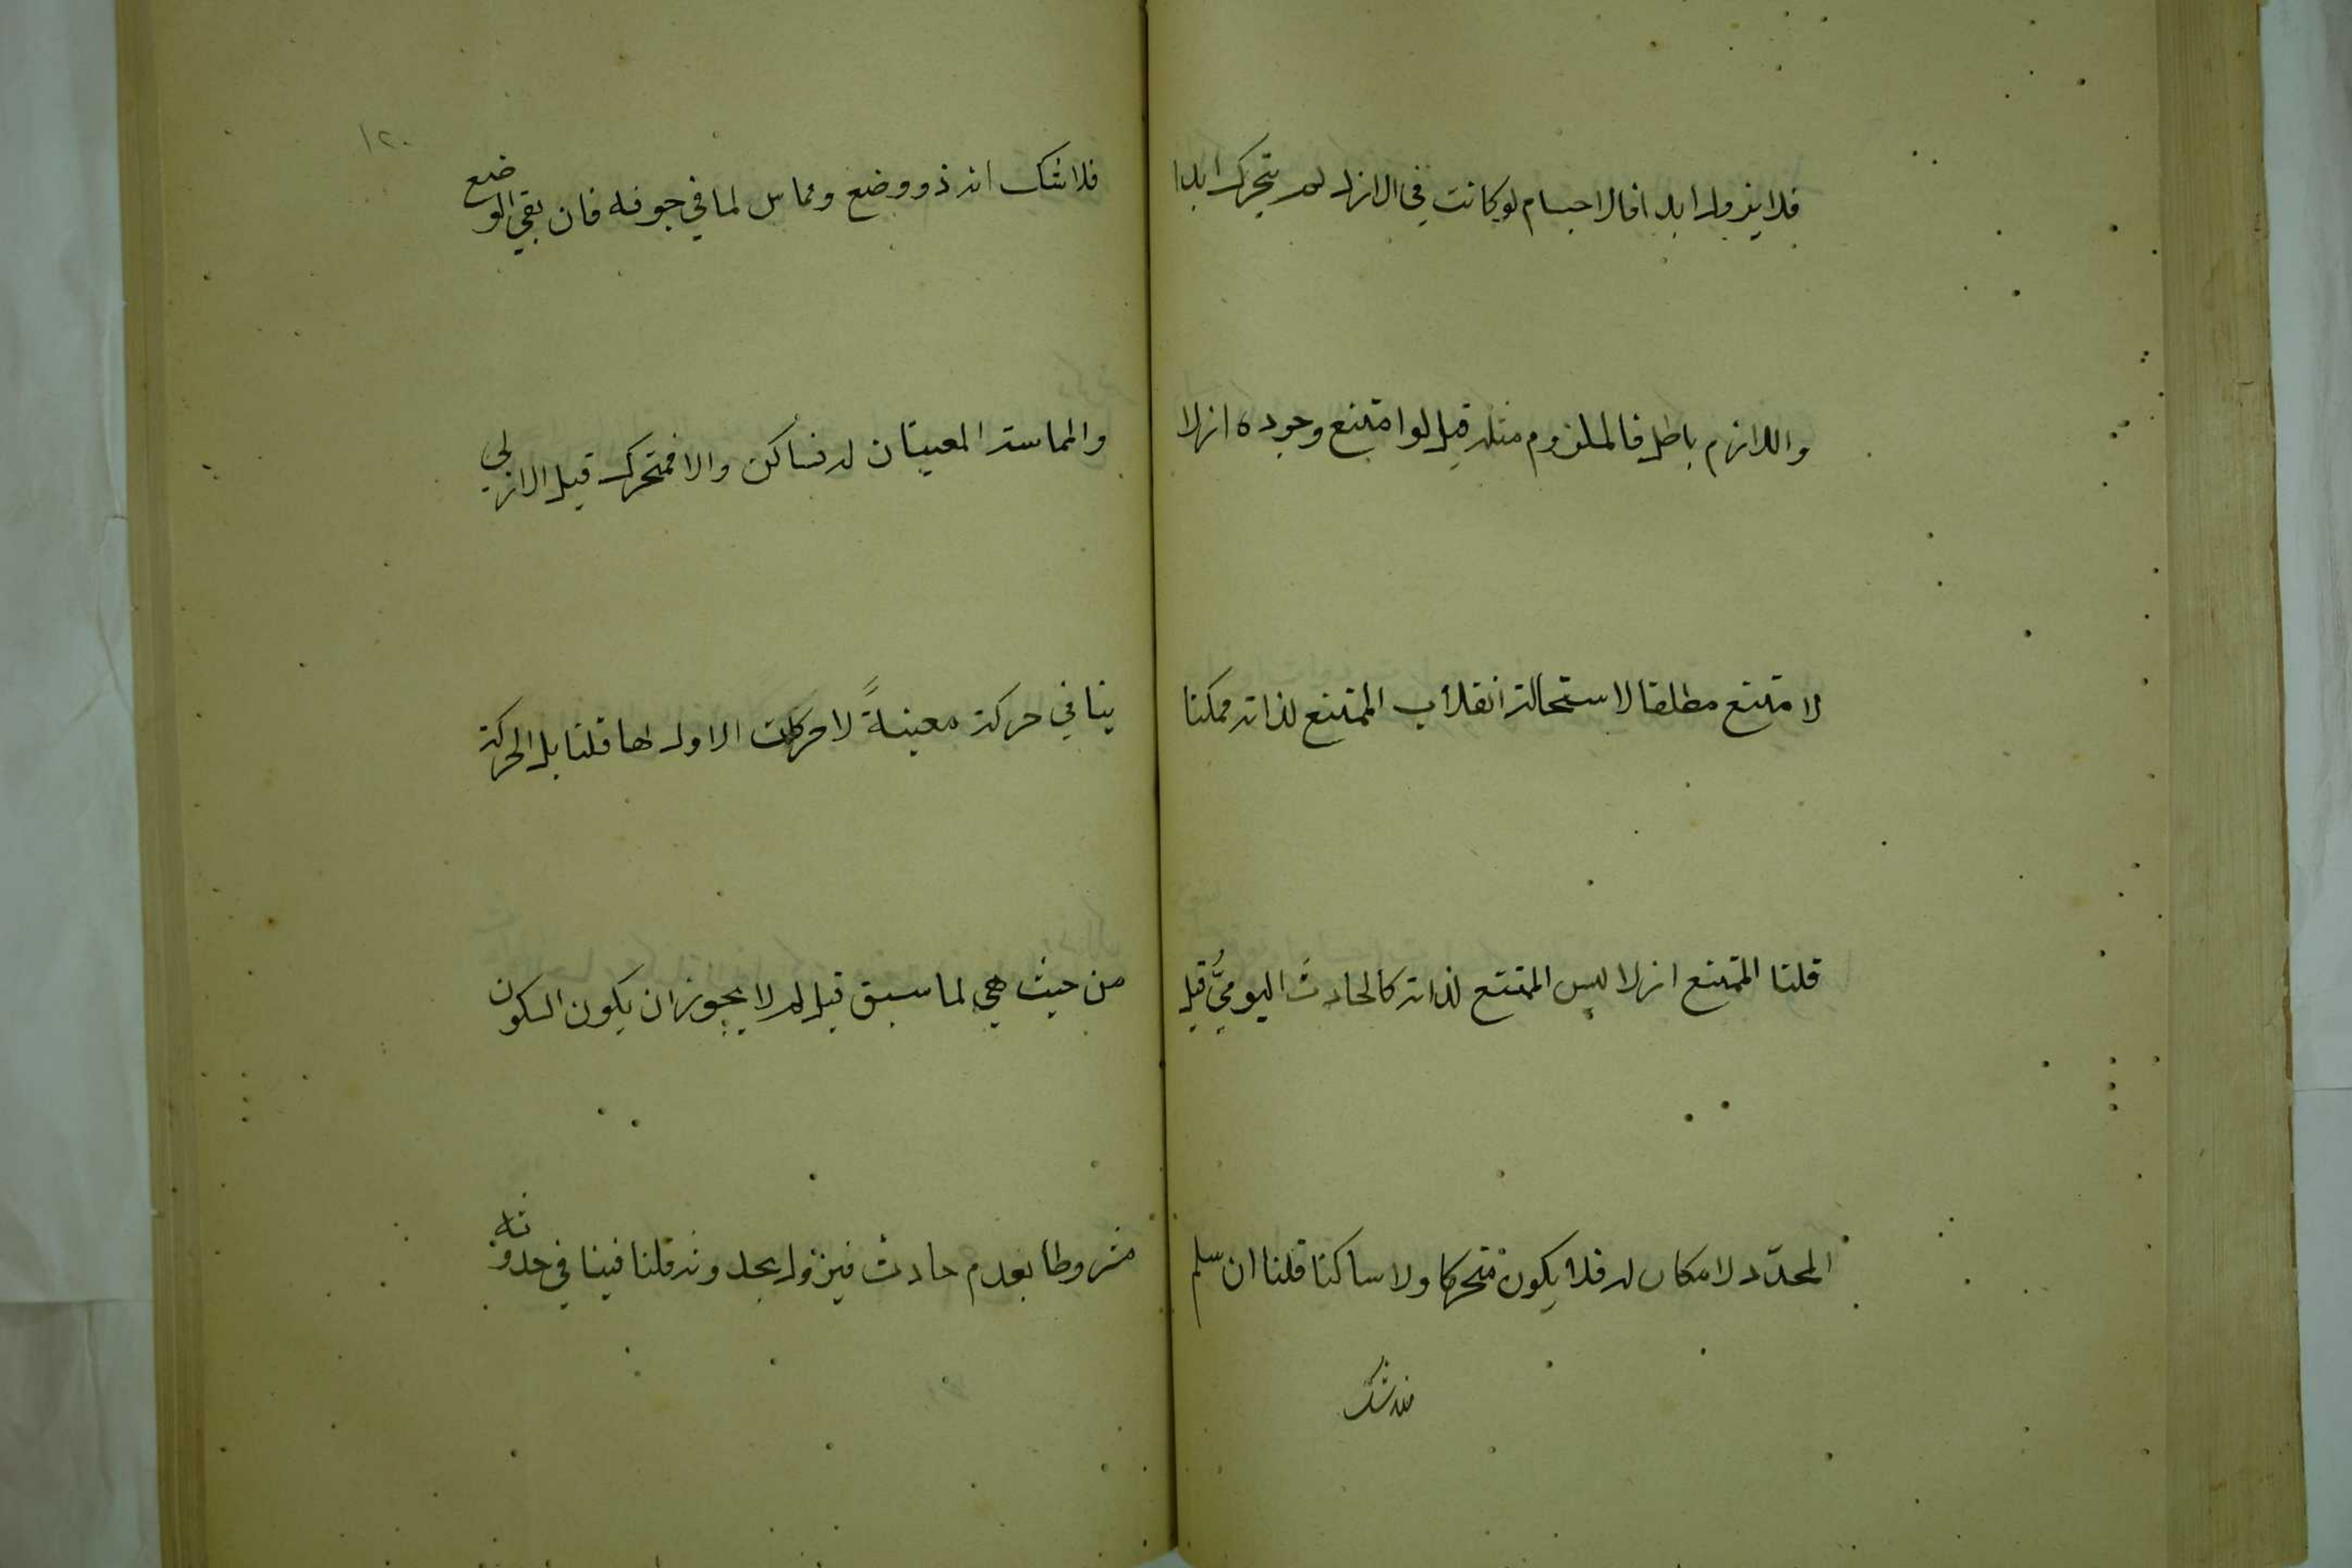 فلا يزول ابدا فالاجسام لو كانت في الازل لم يتحرك ابدا
واللازم باطل فالملزوم مثله قيل لو امتنع وجوده ازلا
لامتنع مطلقا لاستحالة انقلاب الممتنع لذاته ممكنا
قلنا الممتنع ازلا ليس الممتنع لذاته كالحادث اليوميّ قيل
المحدّد لا مكان له فلا يكون متحركا ولا ساكنا قلنا ان سلم
فلا شك
١٢٠
فلا شك انه ذو وضع ومماس لما في جوفه فان بقي الوضع
والمماسة المعينتان له فساكن والا فمتحرك قيل الازلي
ينافي حركة معينةً لا حركات لا اول لها قلنا بل الحركة
من حيث هي لما سبق قيل لم لا يجوز ان يكون السكون
مشروطا بعدم حادث فيزول بحدوثه قلنا فينافي حدوثه